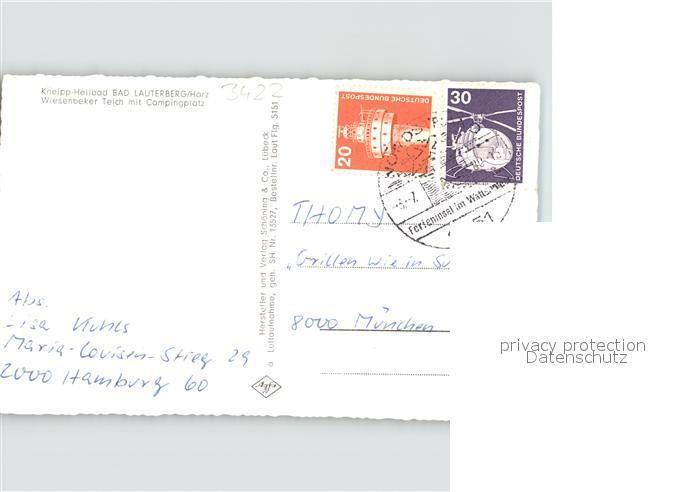 Kneipp-Heilbad BAD LAUTERBERG/Harz
Wiesenbeker Teich mit Campingplatz
3422
Hersteller und Verlag Schöning & Co., Lübeck
u Luftaufnahme, gen. SH Nr. 13527, Bestellnr. Laut Flg. 5151
20
DEUTSCHE BUNDESPOST
30
DEUTSCHE BUNDESPOST
Ferieninsel im
THOMY
„Grillen wie in
8000 München
Abs.
Lisa
Maria-Louisen-Stieg 29
2000 Hamburg 60
privacy protection
Datenschutz